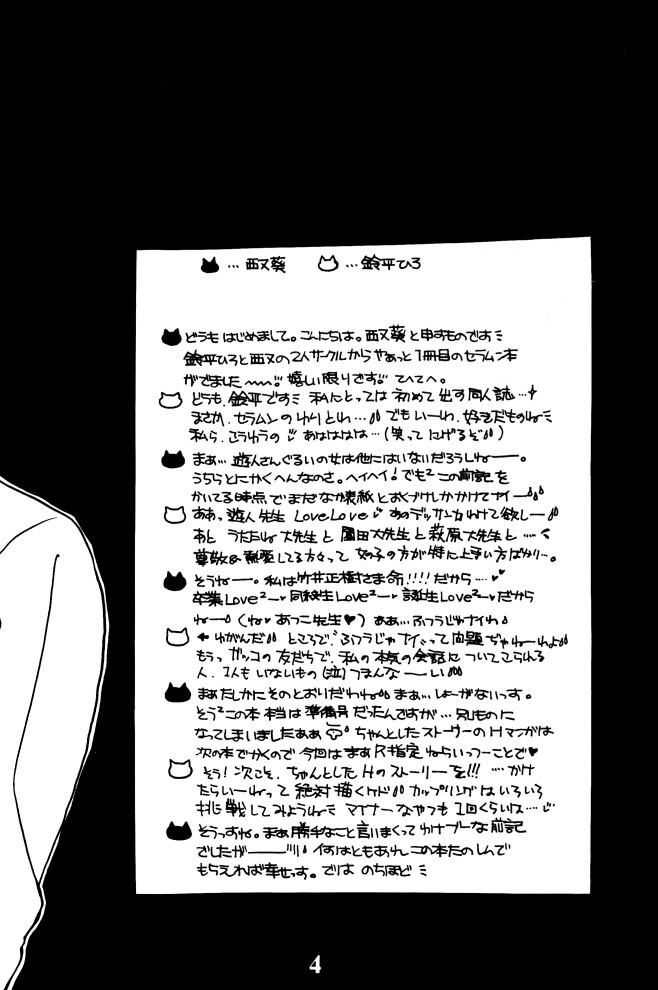 …西又葵 …鈴平ひろ
どうも はじめまして。こんにちは。西又葵と申すものです
鈴平ひろと西又の2人サークルからやぁっと1冊目のセラムン本
がでました〜〜!! 嬉しい限りです!! てへてへ。
どうも、鈴平です 私にとっては 初めて出す同人誌…
まさか、セラムンの とわ… でもいーわ、好きだものね
私ら、こうゆうの あはははは…(笑ってにげるぞ)
まぁ… 遊人さんぐるいの女は他にはいないだろうしねー。
うちらとにかくへんなのさ。ヘイヘイ! でも2この前記を
かいてる時点でまだなか表紙とおくづけしかかけてナイー
ああっ 遊人先生 LoveLove あのデッサン力わけて欲しー
あと うたたね大先生と 園田大先生と萩原大先生と……
尊敬&熱愛してる方々って 女の子の方が特に上手い方ばかり…。
そうねー。私は竹井正樹さま命!!!! だから…
卒業Love2ー 同級生Love2ー 誕生Love2ーだから
ねー (ね あつこ先生♥) ああ…ふつうじゃナイわ
← ゆがんだ ところで、ふつうじゃナイって問題じゃねーわよ
もうっ ガッコの友だちで、私の本気の会話に ついてこられる
人、1人もいないもの (泣) つまんなーーい
まぁたしかにそのとおりだわね まぁ…しょーがないっす。
そう2この本 本当は準備号だったんですが… 別ものに
なってしまいましたああ ちゃんとしたストーリーのHマンガは
次の本でかくので 今回はまあR指定ねらいっつーことで♥
そう! 次こそ、ちゃんとしたHのストーリーを!!! …かけ
たらいーねって 絶対描くケド カップリングはいろいろ
挑戦してみようね マイナーなやつも 1回くらいは…
そうっすね。まぁ勝手なこと言いまくってわけブーな前記
でしたがーーー!! 何はともあれ この本たのしんで
もらえれば幸せっす。では のちほど
4